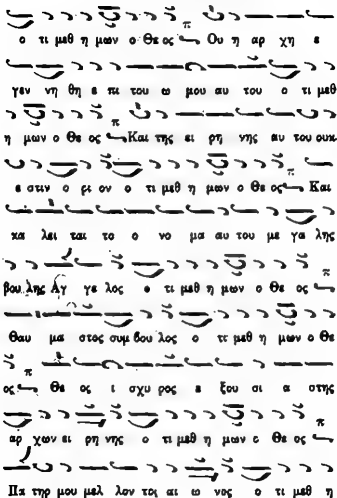 ο τι μεθ η μων ο Θε ος Ου η αρ χη ε
γεν νη θη ε πι του ω μου αυ του ο τι μεθ
η μων ο Θε ος Και της ει ρη νης αυ του ουκ
ε στιν ο ρι ον ο τι μεθ η μων ο Θε ος Και
κα λει ται το ο νο μα αυ του με γα λης
βου λης Αγ γε λος ο τι μεθ η μων ο Θε ος
Θαυ μα στος συμ βου λος ο τι μεθ η μων ο Θε
ος Θε ος ι σχυ ρος ε ξου σι α στης
αρ χων ει ρη νης ο τι μεθ η μων ο Θε ος
Πα τηρ μου μελ λον τος αι ω νος ο τι μεθ η